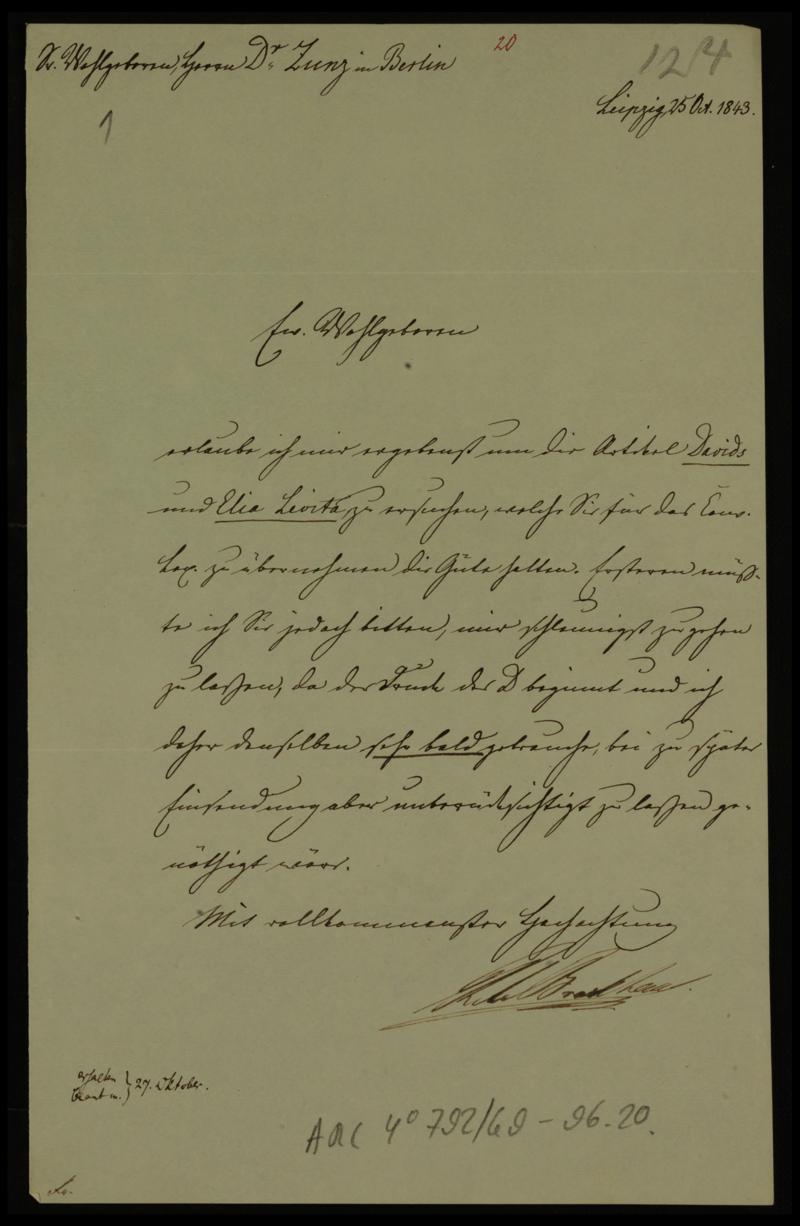 Sr. Wohlgeboren, Herrn Dr. Zunz in Berlin
20
124
1
Leipzig, 25 Oct. 1843.
Ew. Wohlgeboren
erlaube ich mir ergebenst um die Artikel Davids
und Elia Levita zu ersuchen, welche Sie für das Conv.
Lex. zu übernehmen die Güte hatten. Ersteren müß-
te ich Sie jedoch bitten, mir schleunigst zugehen
zu lassen, da der Druck des D beginnt und ich
daher denselben sehr bald gebrauche, bei zu später
Einsendung aber unberücksichtigt zu lassen ge-
nöthigt wäre.
Mit vollkommenster Hochachtung
Brockhaus.
erhalten
beantw. } 27. Oktober.
ARC 4° 792/G9 - 96.20.